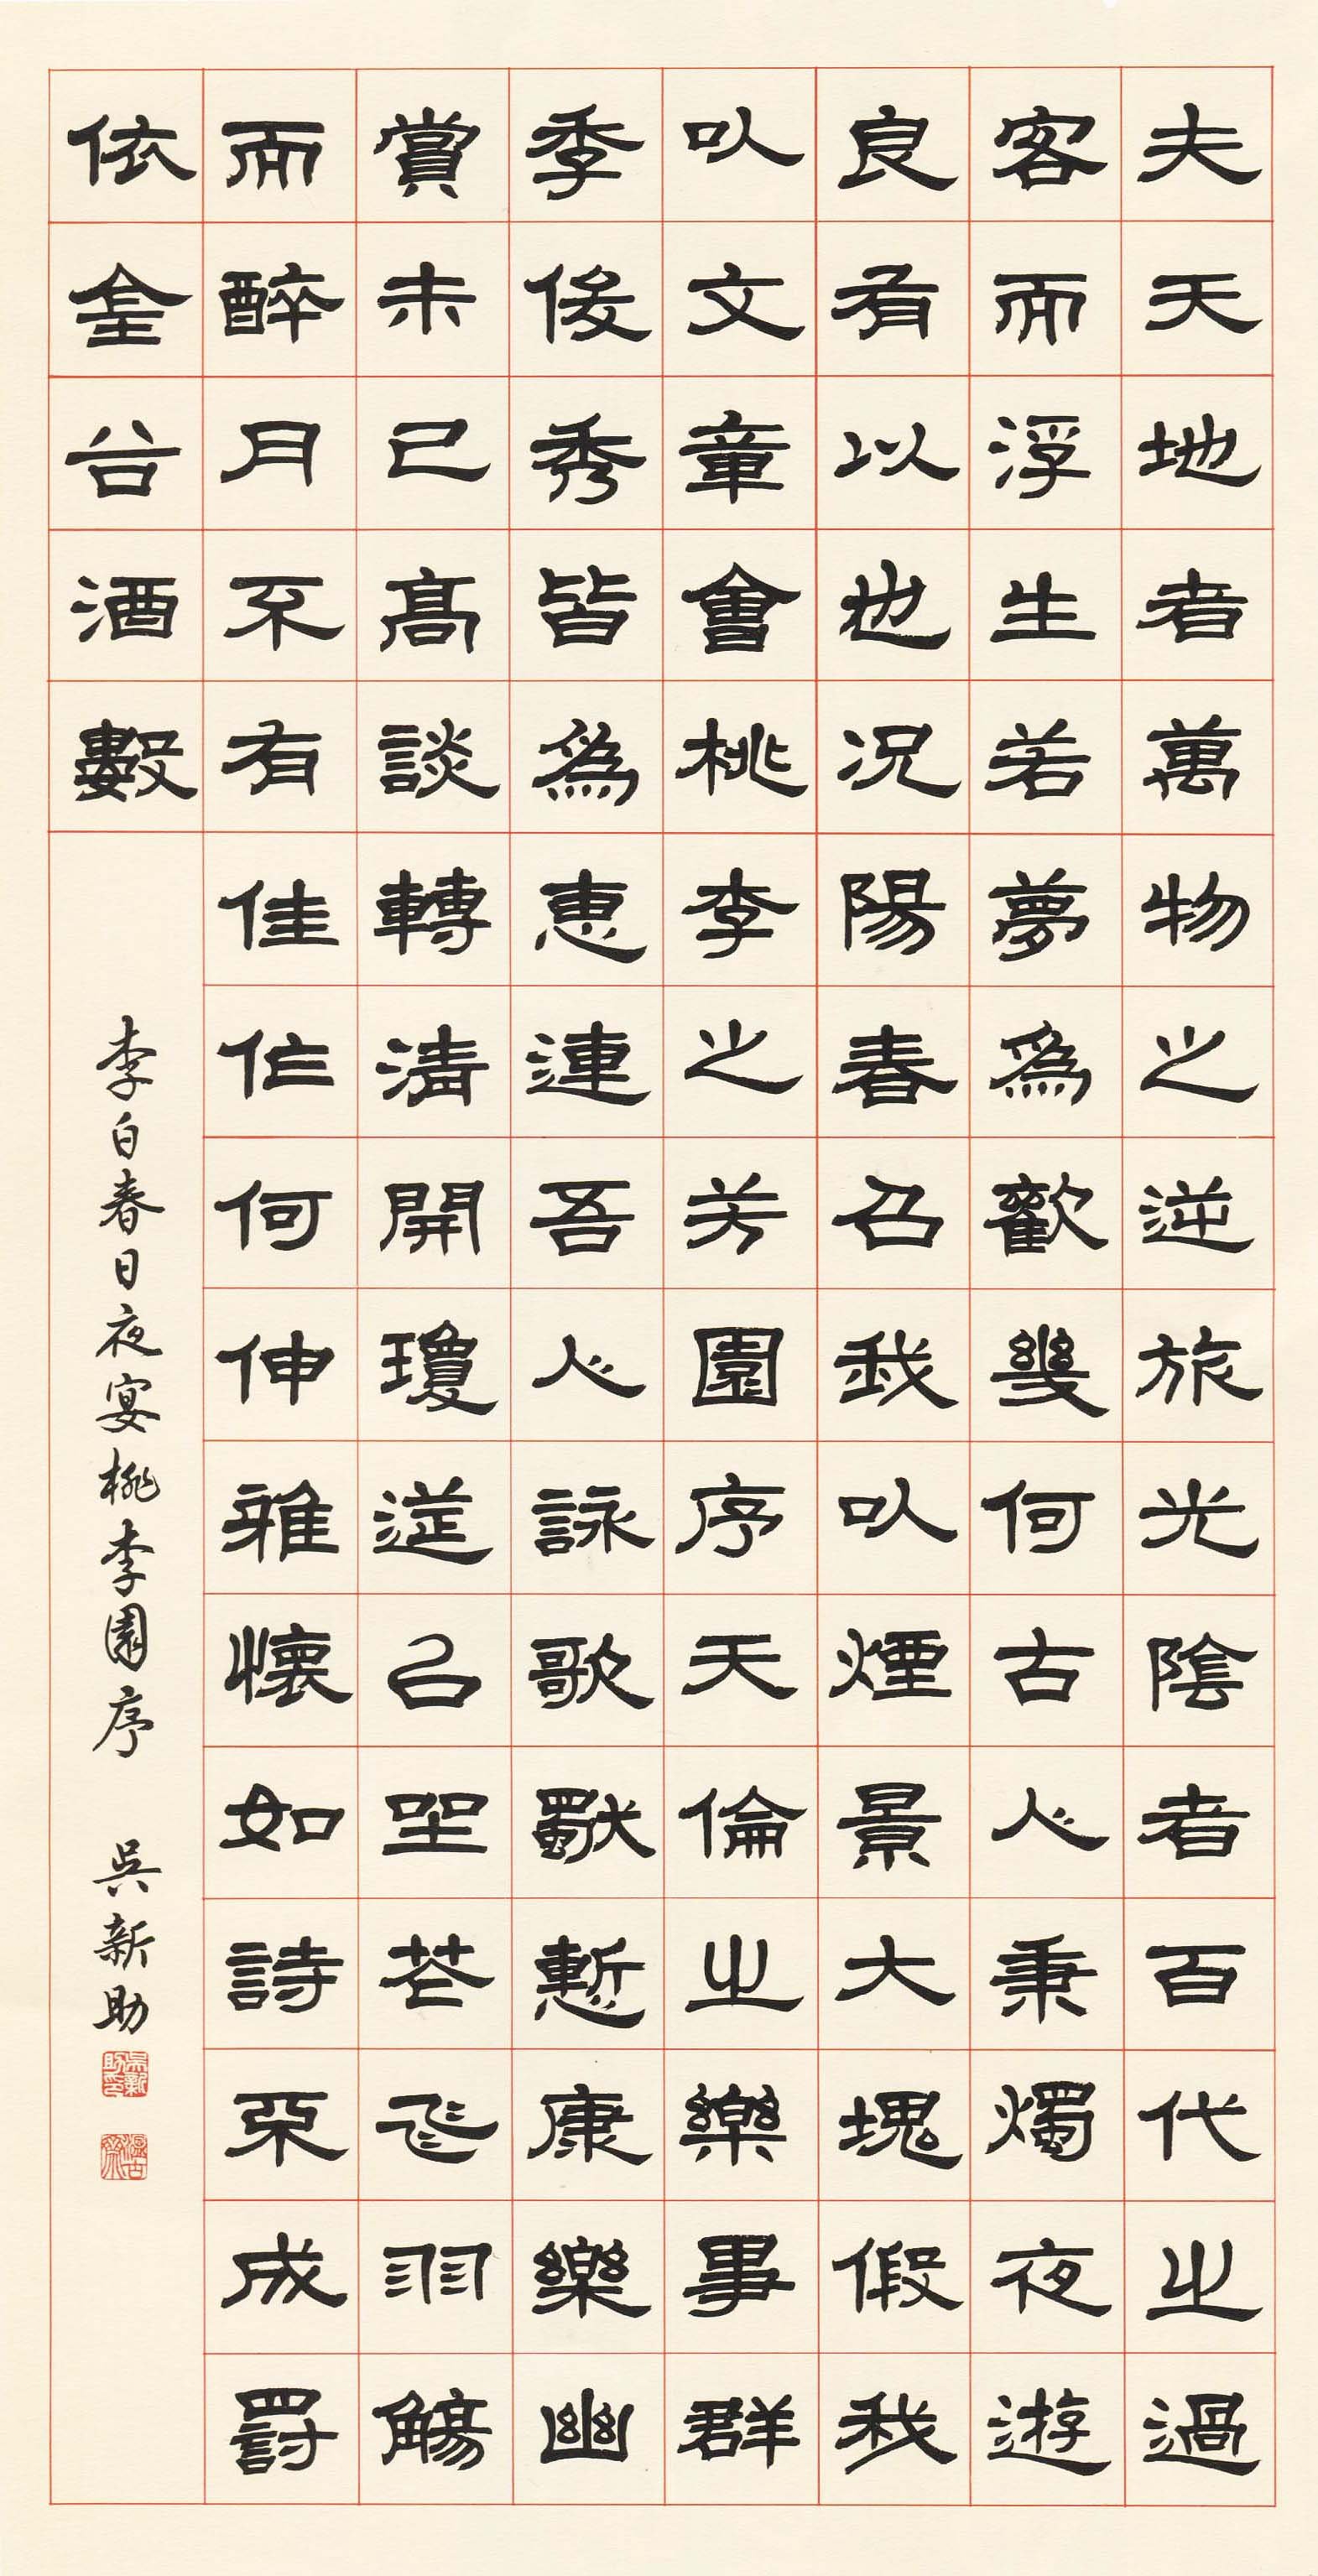 夫天地者萬物之逆旅光陰者百代之過
客而浮生若夢為歡幾何古人秉燭夜遊
良有以也况陽春召我以煙景大塊假我
以文章會桃李之芳園序天倫之樂事群
季俊秀皆為惠連吾人詠歌獨慙康樂幽
賞未已高談轉清開瓊筵以坐花飛羽觴
而醉月不有佳作何伸雅懷如詩不成罰
依金谷酒數
李白春日夜宴桃李園序 吳新助
吳新助印